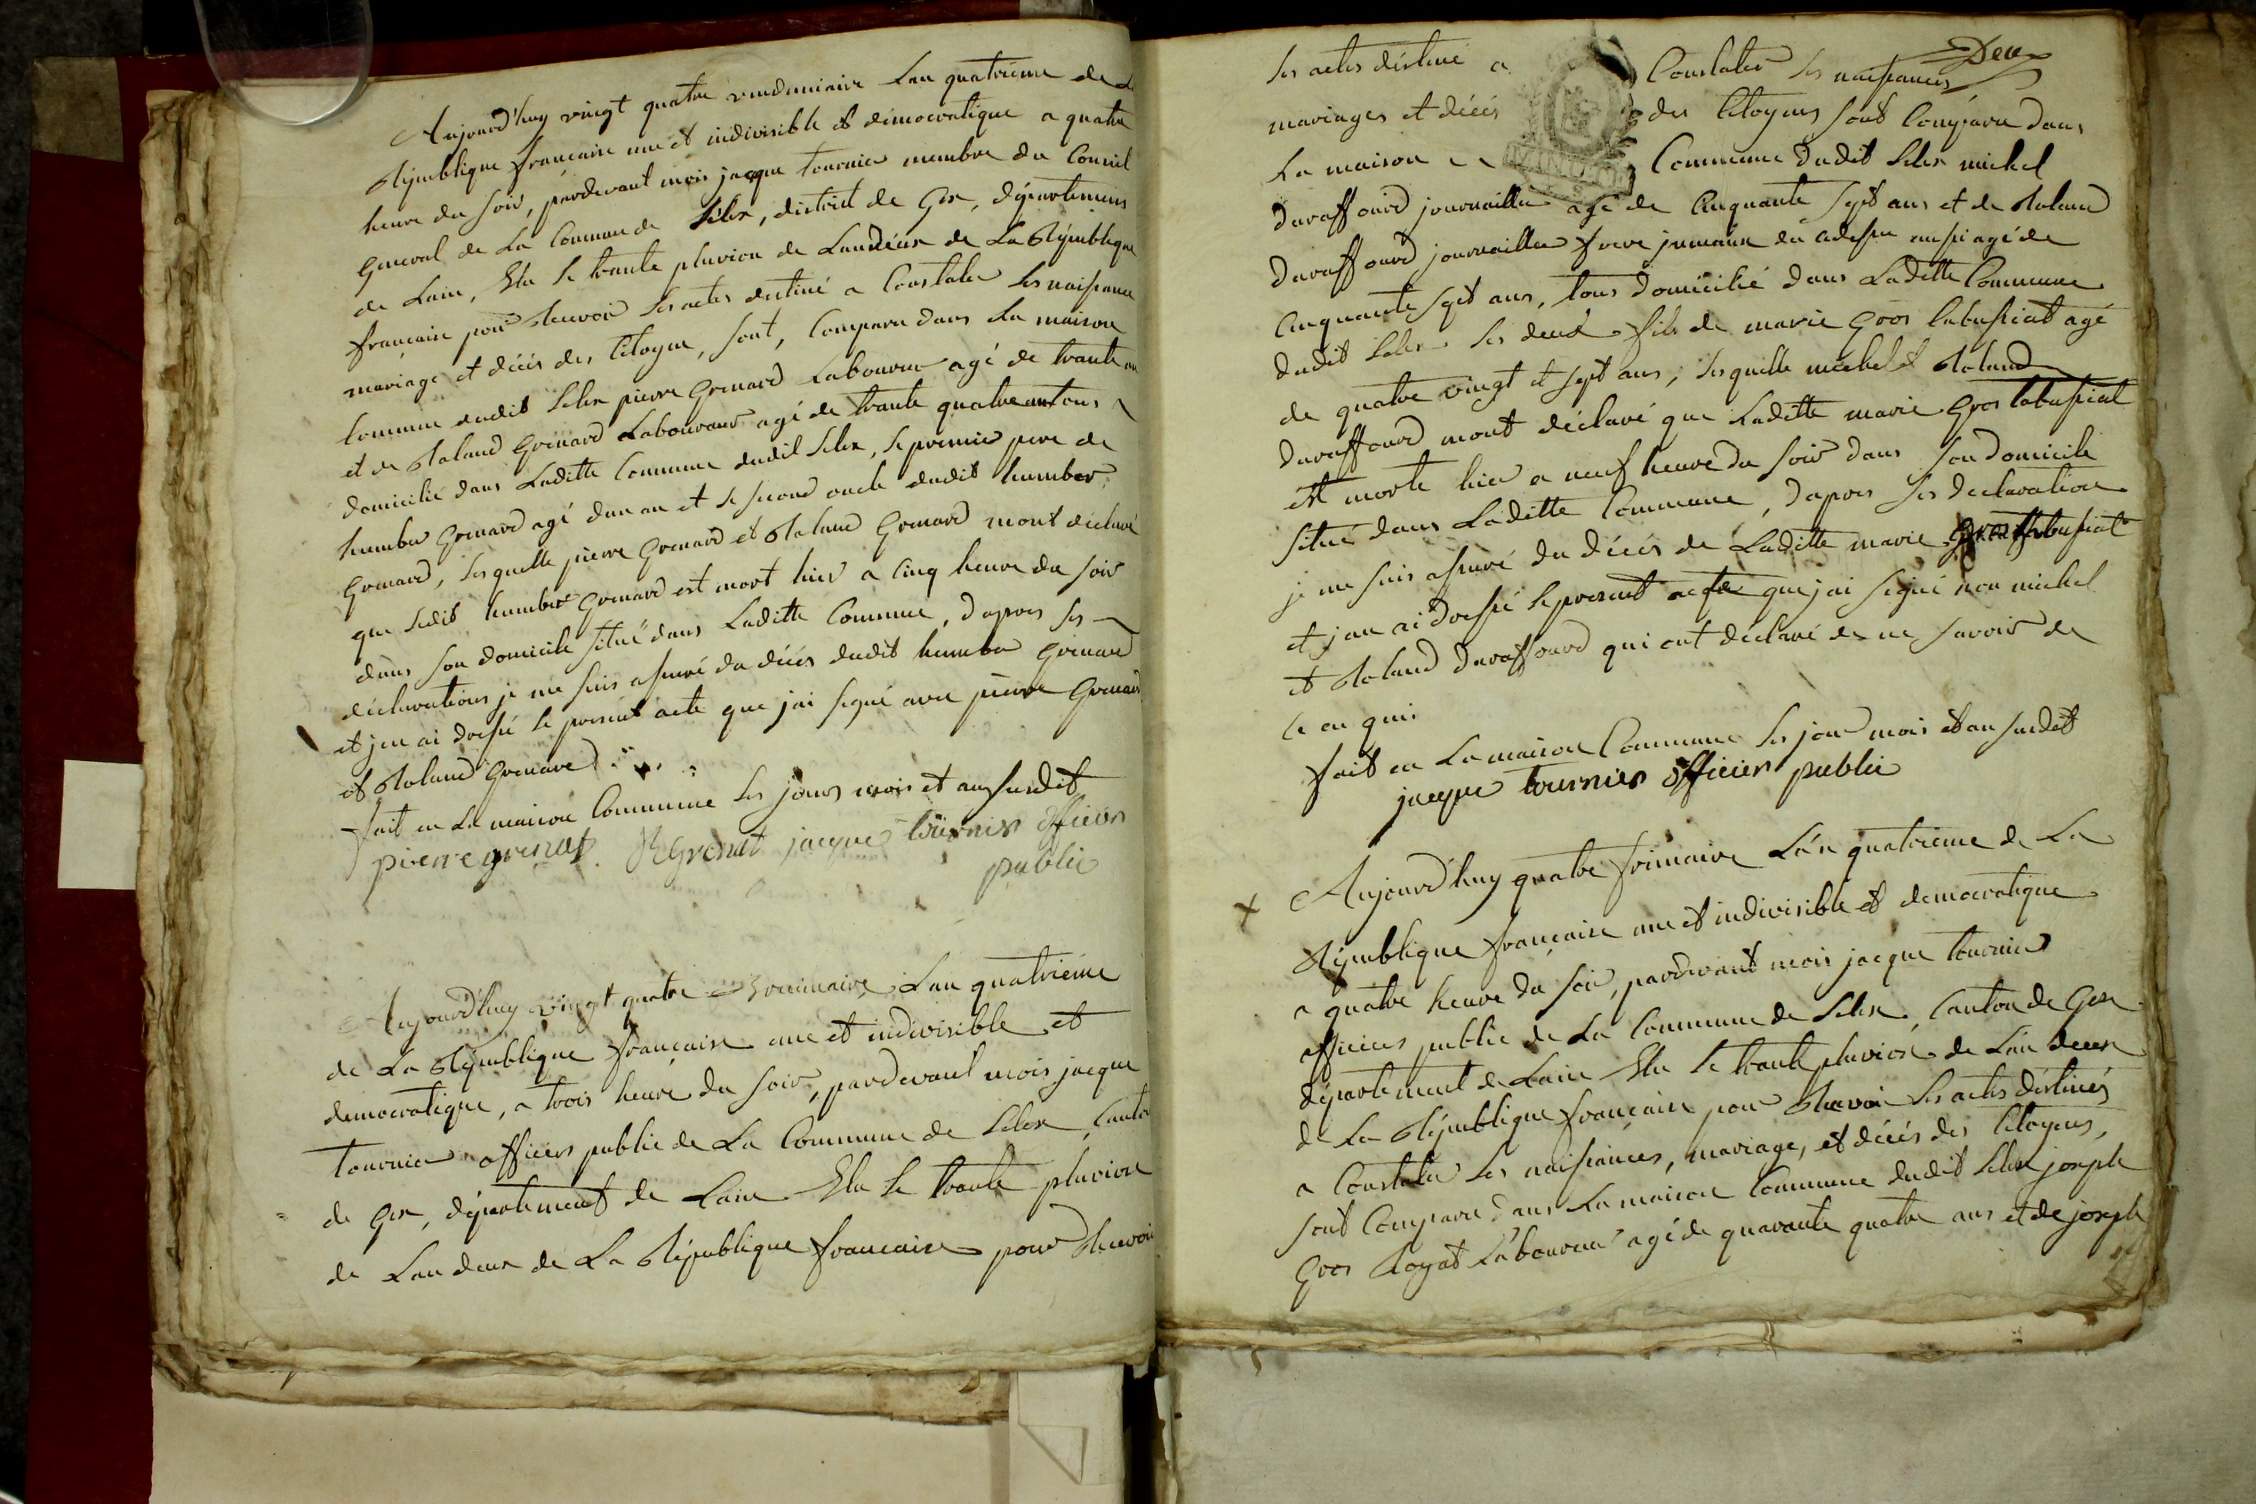 Aujourd'huy vingt quatre vendemiaire Lan quatrieme de La
République française une et indivisible et démocratique a quatre
heure du soir, pardevant mois jacque tournier membre du Conseil
general de La Commune de Lélex, district de Gex, département
de Lain, Elu le trante pluviose de Landeux de La République
française pour Recevoir les actes destiné a Constater les naissance
mariage et décés des Citoyens, sont, Comparu dans La maison
Commune dudit Lelex pierre Grenard Laboureur agé de trante ans
et de Roland Grenard Laboureur agé de trante quatre ans tous
domicilié dans Laditte Commune dudit Lelex, le premier pere de
humber Grenard agé dun an et le second oncle dudit humber
Grenard, lesquelle pierre Grenard et Roland Grenard mont déclaré
que ledit humber Grenard est mort hier a Cinq heure du soir
dans son domicile situé dans Laditte Commune, dapres les
déclarations je me suis assuré du décés dudit humber Grenard
et jen ai dressé le present acte que jai signé avec pierre Grenard
et Roland Grenard
fait en La maison Commune les jours mois et an susdit
pierre grenat. R Grenat jacque tournier officier
public
Aujourd'huy vingt quatre Brumaire Lan quatrieme
de La République française une et indivisible et
democratique, a trois heure du soir, pardevant mois jacque
tournier officier public de La Commune de Lelex, Canton
de Gex, département de Lain Elu le trante pluviose
de Lan deux de La République française pour Recevoir
Deux
les actes déstiné a Constater les naissances
mariages et décés des Citoyens sont Comparu dans
La maison Commune dudit Lelex michel
Duraffourd journaillier agé de Cinquante sept ans et de Roland
Duraffourd journaillier frere jumaux du adesse aussi agé de
Cinquante sept ans, tous domicilié dans Laditte Commune
dudit Lelex les deux fils de marie Gros Labussiat agé
de quatre vingt et sept ans, lesquelle michel et Roland
Duraffourd mont déclaré que Laditte marie Gros Labussiat
est morte hier a neuf heure du soir dans son domicile
situé dans Laditte Commune, dapres les declaration
je me suis assuré du décés de Laditte marie Gros Labussiat
et jan ai dressé le present acte que jai signé non michel
et Roland Duraffourd qui ont déclaré de ne savoir de
ce en quis
fait en La maison Commune les jour mois et an susdit
jacque tournier officier public
x Aujourd'huy quatre frimaire Lan quatrieme de La
République française une et indivisible et democratique
a quatre heure du soir, pardevant mois jacque tournier
officier public de La Commune de Lelex, Canton de Gex
département de Lain Elu le trante pluviose de Lan deux
de La République française pour Recevoir les actes déstinés
a Constater les naissances, mariage, et décés des Citoyens,
sont Comparu dans La maison Commune dudit Lelex joseph
Gros Royat Laboureur agé de quarante quatre ans et de joseph